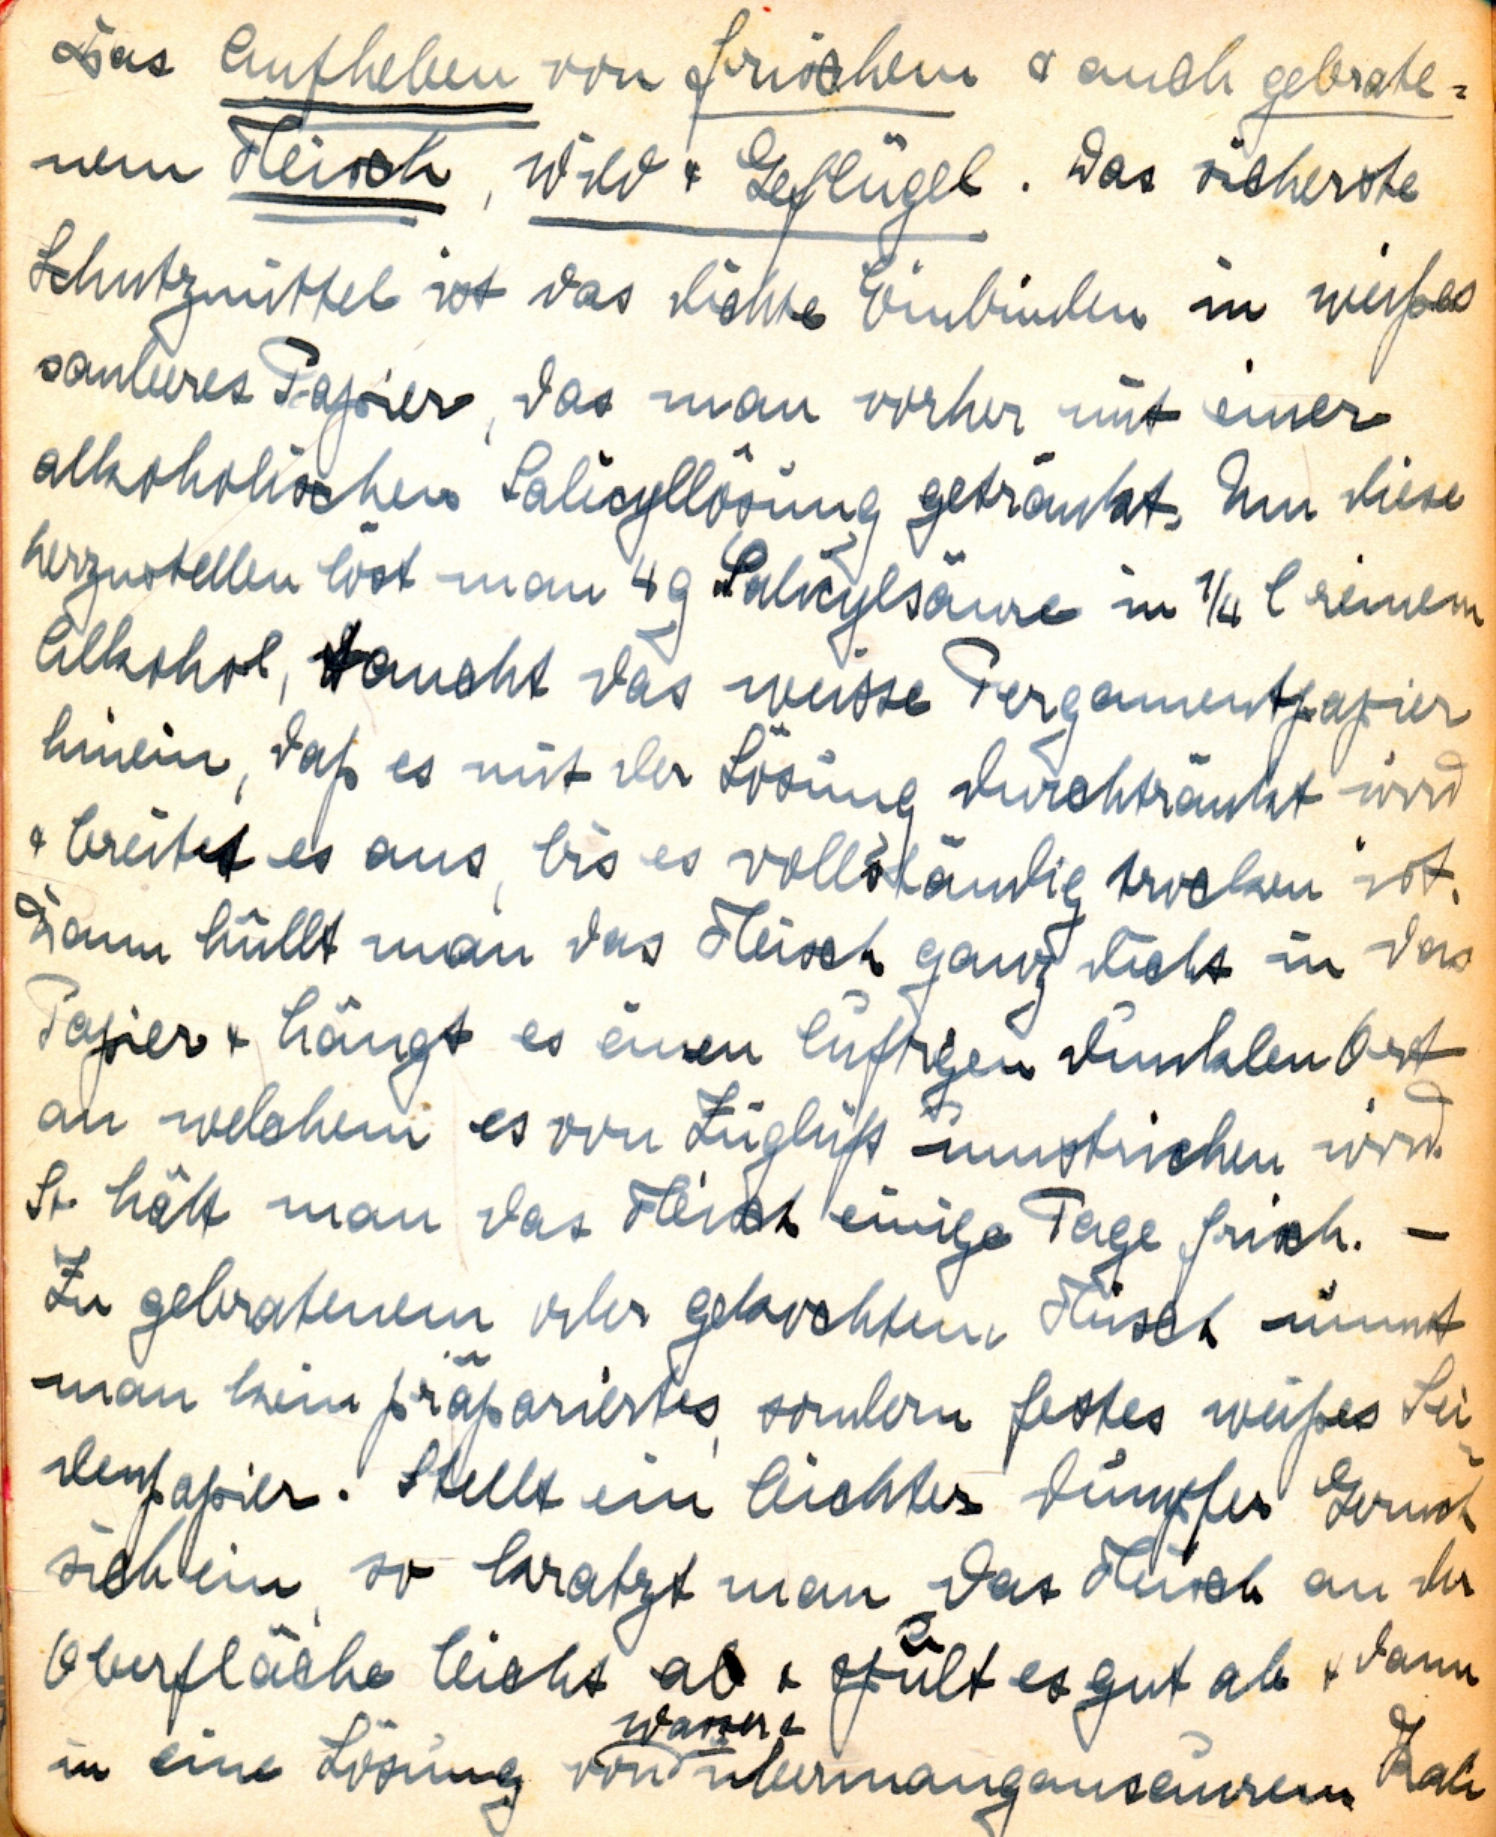 Das Aufheben von frischem & auch gebrate=
nem Fleisch, Wild & Geflügel. Das sicherste
Schutzmittel ist das dichte Einbinden in weißes
sauberes Papier, das man vorher mit einer
alkoholischen Salicyllösung getränkt. Um diese
herzustellen löst man 4 g Salicylsäure in 1/4 l reinem
Alkohol, taucht das weisse Pergamentpapier
hinein, daß es mit der Lösung durchtränkt wird
& breitet es aus, bis es vollständig trocken ist.
Dann hüllt man das Fleisch ganz dicht in das
Papier & hängt es einen luftigen dunklen Ort
an welchem es von Zugluft umstrichen wird.
So hält man das Fleisch einige Tage frisch. –
Zu gebratenem oder gekochtem Fleisch nimmt
man kein präpariertes, sondern festes weißes Sei-
denpapier. Stellt ein leichter dumpfer Geruch
sich ein, so kratzt man das Fleisch an der
Oberfläche leicht ab & spült es gut ab & dann
in eine Lösung von Wasser & übermangansaurem Kali